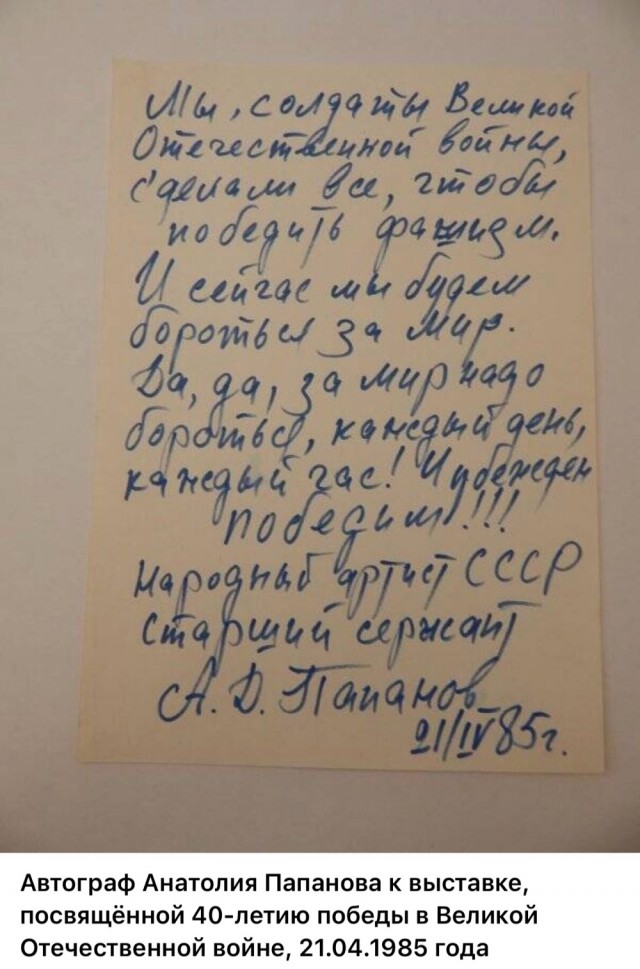 Мы, солдаты Великой
Отечественной войны,
сделали все, чтобы
победить фашизм.
И сейчас мы будем
бороться за мир.
Да, да, за мир надо
бороться, каждый день,
каждый час! И убежден
победим!!!
Народный артист СССР
Старший сержант
А. Д. Папанов
21/IV 85г.
Автограф Анатолия Папанова к выставке,
посвящённой 40-летию победы в Великой
Отечественной войне, 21.04.1985 года